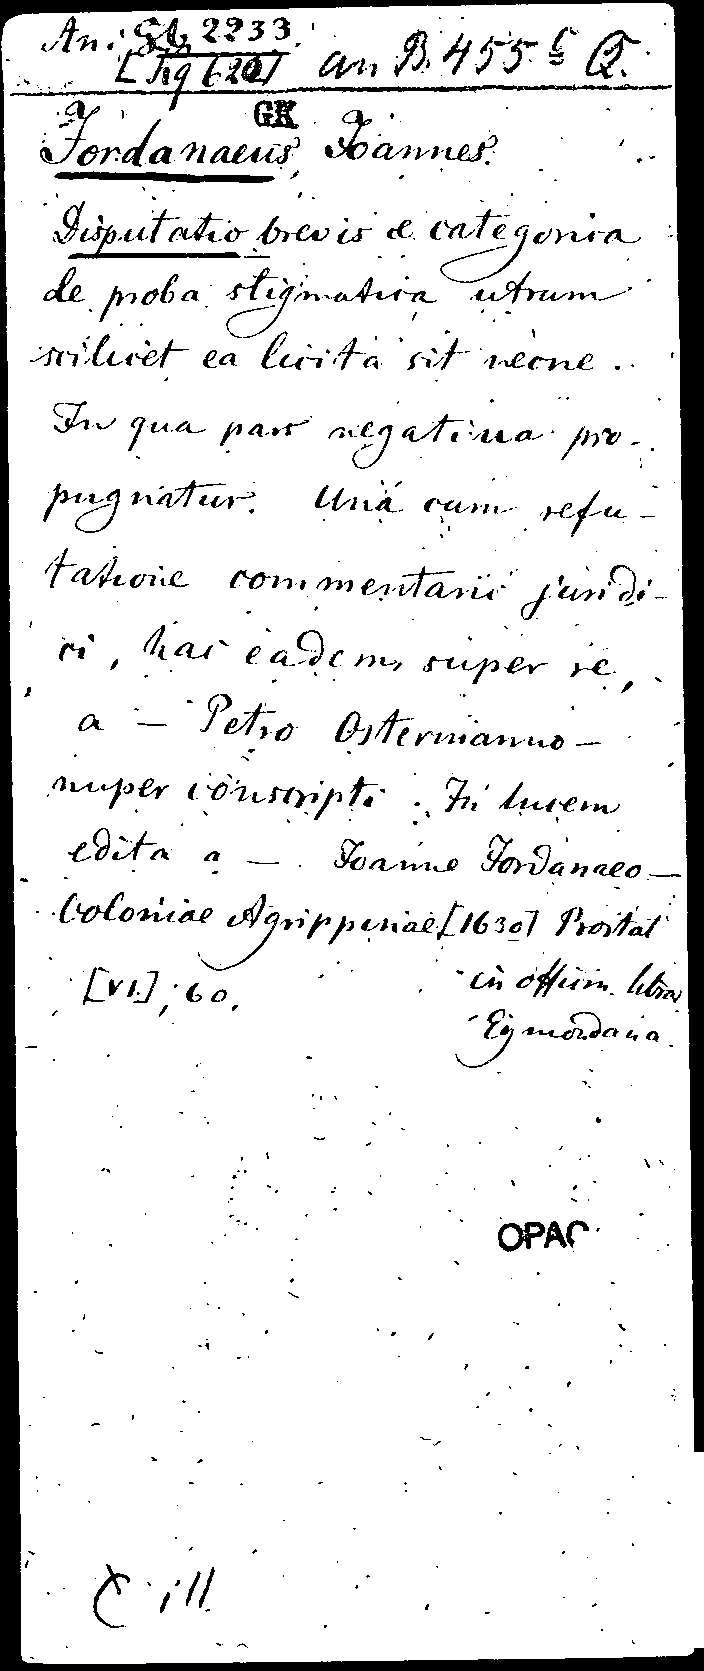 An: Gb 2233.
[Kg 620] an B. 455 c Q.
GK
Jordanaeus, Joannes.
Disputatio brevis & categorica
de proba stigmatica utrum
scilicet ea licita sit necne.
In qua pars negativa pro-
pugnatur. Unà cum refu-
tatione commentarii juridi-
ci, hac eadem super re,
a — Petro Ostermanno —
nuper conscripti. In lucem
edita a — Joanne Jordanaeo —
Coloniae Agrippinae [1630] Prostat
[VI], 60. in officin. libra
Egmondana.
OPAC
ill